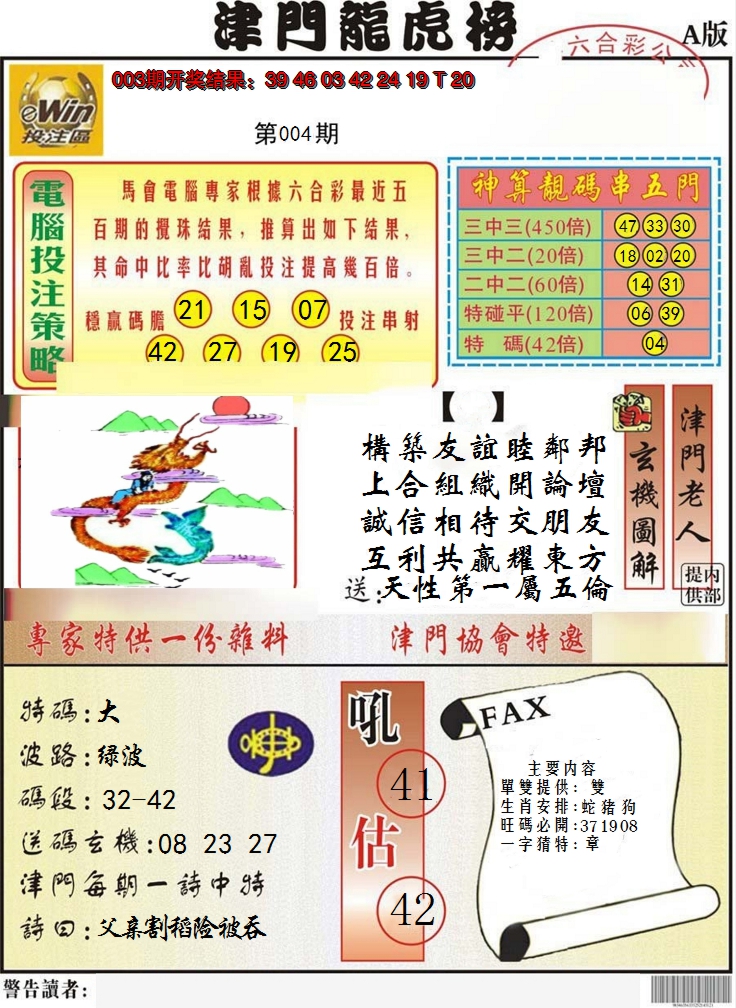 津門龍虎榜
A版
六合彩公
003期开奖结果：39 46 03 42 24 19 T 20
eWin
投注區
第004期
電腦投注策略
馬會電腦專家根據六合彩最近五
百期的攪珠结果，推算出如下结果，
其命中比率比胡亂投注提高幾百倍。
穩贏碼膽 21 15 07 投注串射
42 27 19 25
神算靚碼串五門
三中三(450倍) 47 33 30
三中二(20倍) 18 02 20
二中二(60倍) 14 31
特碰平(120倍) 06 39
特 碼(42倍) 04
【 】
構築友誼睦鄰邦
上合組織開論壇
誠信相待交朋友
互利共贏耀東方
送:天性第一屬五倫
玄機圖解
津門老人
内部提供
專家特供一份雜料
津門協會特邀
特碼:大
波路:绿波
碼段: 32-42
送碼玄機:08 23 27
津門每期一詩中特
詩曰:父亲割稻险被吞
吼
41
估
42
FAX
主要内容
單雙提供: 雙
生肖安排:蛇猪狗
旺碼必開:371908
一字猜特: 章
警告讀者: